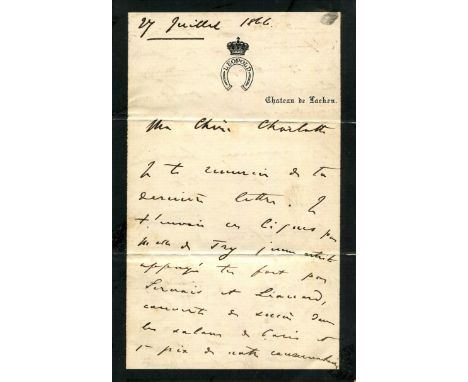 27 Juillet 1866.
LEOPOLD
Chateau de Laeken.
Ma Chère Charlotte
Je te remercie de ta
dernière lettre. Je
t'envoie ces lignes par
Melle de Try jeune artiste
appuyé très fort par
Servais et Léonard,
couverte de succès dans
les salons de Paris et
1er prix de notre conservatoire